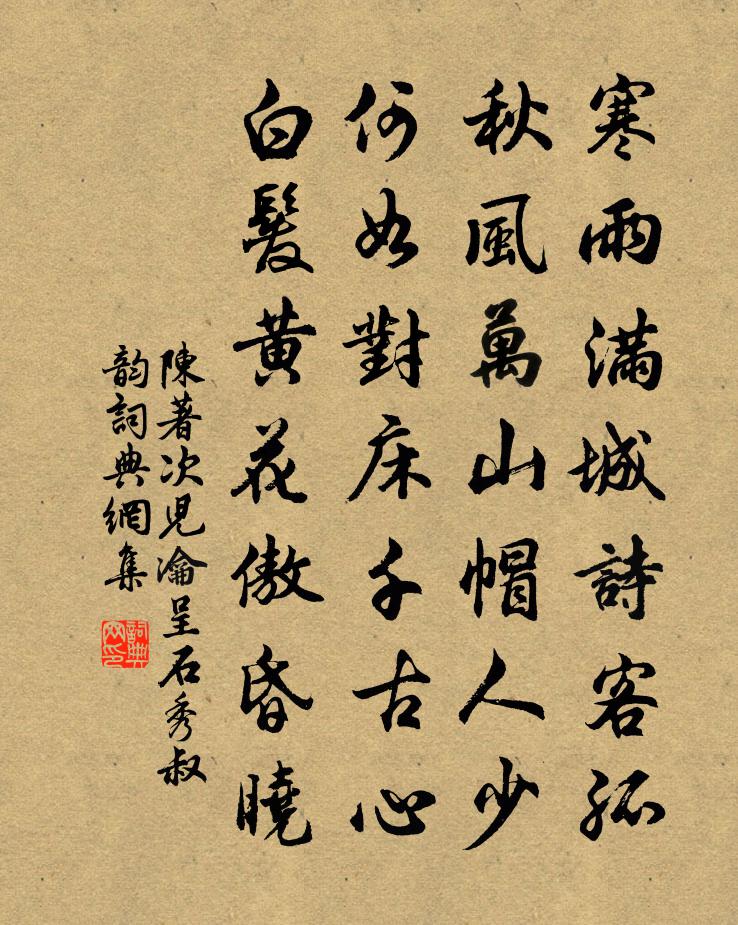 寒雨滿城詩客孤
秋風萬山帽人少
何如對床千古心
白髮黃花傲昏曉
陳著次兒瀹呈石秀叔
韵詞典網集
詞典网印